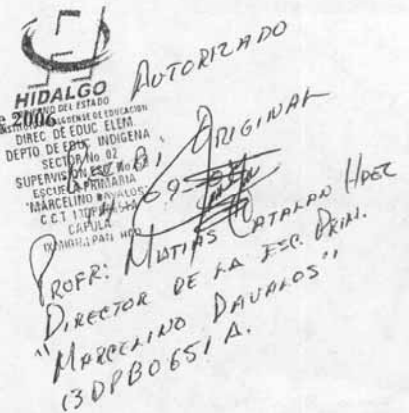 HIDALGO
GOBIERNO DEL ESTADO
e 2006
HIDALGUENSE DE EDUCACION
DIREC DE EDUC ELEM.
DEPTO DE EDUC INDIGENA
SECTOR No 02
SUPERVISION ESC No
ESCUELA PRIMARIA
"MARCELINO DAVALOS"
C.C.T.
CAPULA
IXMIQUILPAN HGO
AUTORIZADO
ORIGINAL
PROFR: MATIAS CATALAN HDEZ
DIRECTOR DE LA ESC. PRIM.
"MARCELINO DAVALOS"
13DPB0651A.